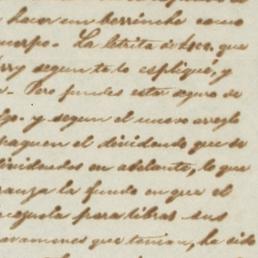 hacer un berrinche como
cuerpo. La letrita de que
rry segun te lo espliqué, y
. Pero puedes estar seguro de
lgo. y segun el nuevo arreglo
paguen el dividendo que se
dividendos en adelante, lo que
ranza la funda en que el
española para librar sus
gravamenes que tenian, ha sido